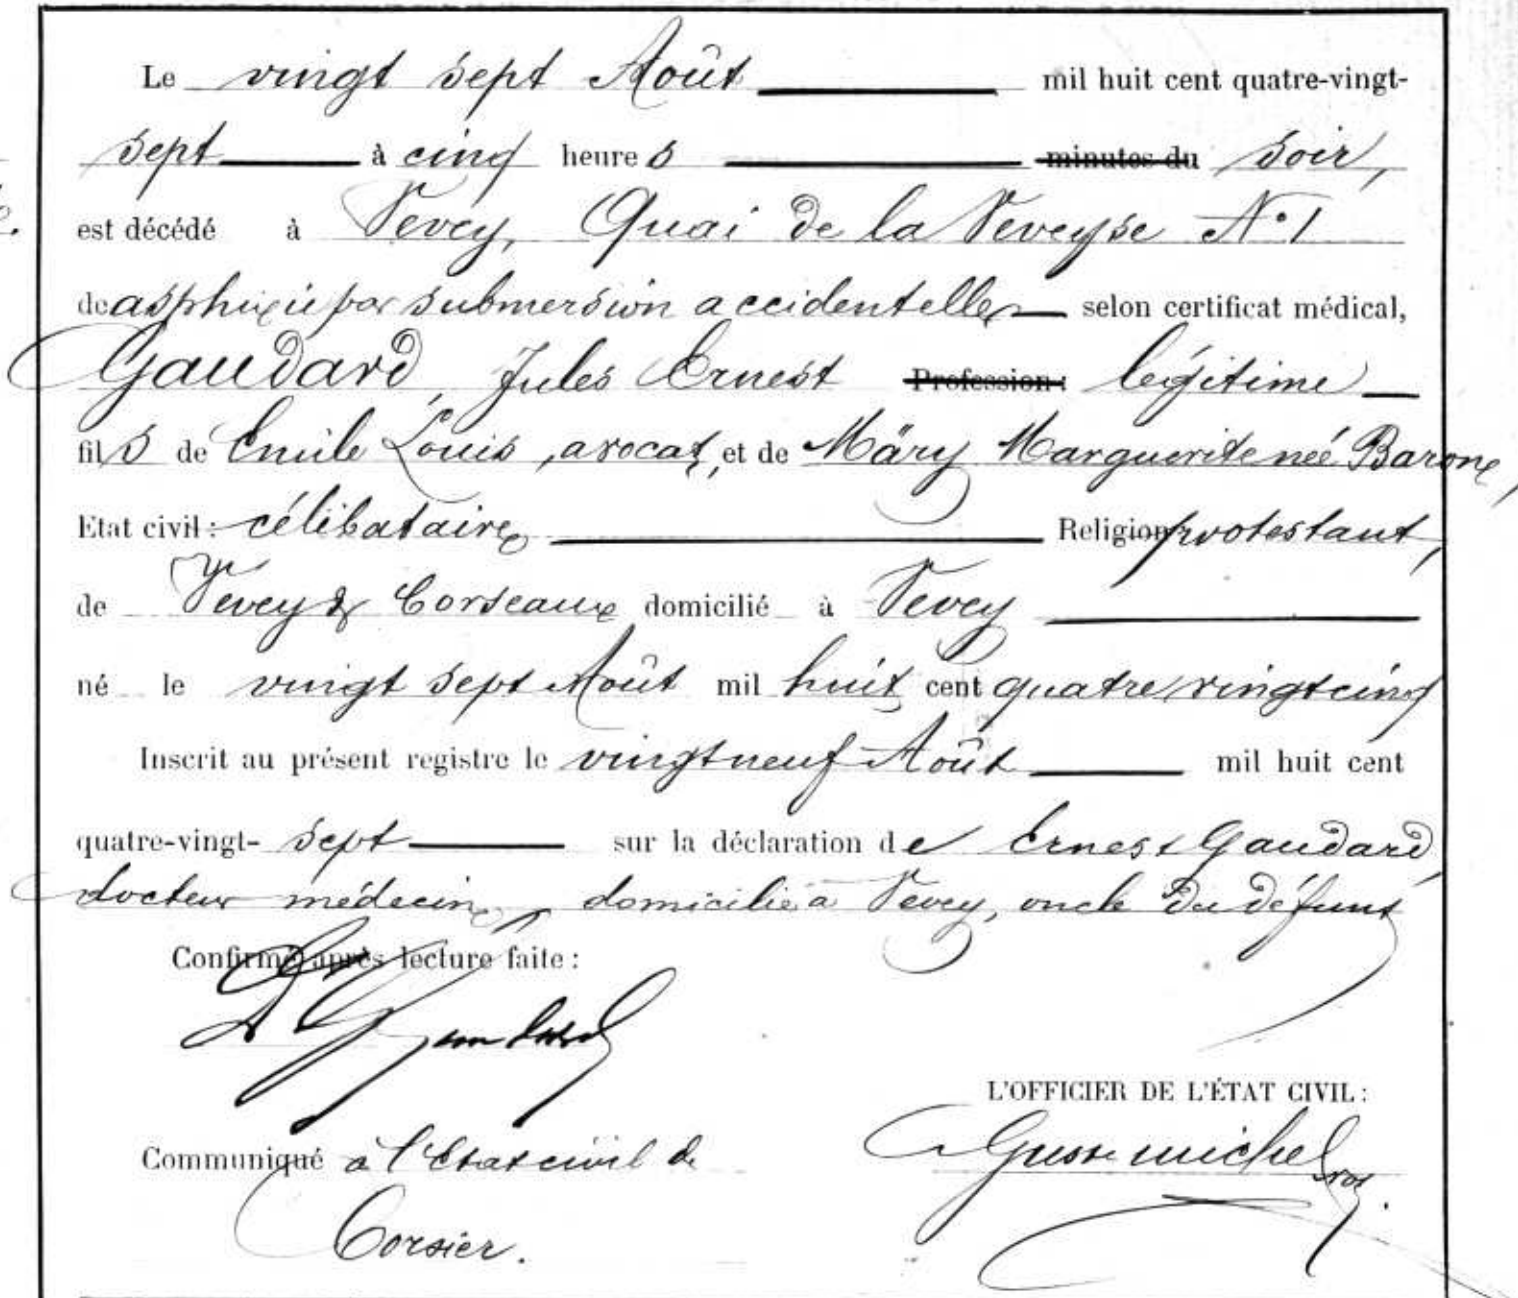 Le vingt sept Août mil huit cent quatre-vingt-
sept à cinq heures minutes du soir,
est décédé à Vevey, Quai de la Veveyse N° 1
de asphixie par submersion accidentelle selon certificat médical,
Gaudard, Jules Ernest Profession : légitime
fils de Emile Louis, avocat, et de Märy Marguerite née Barone,
Etat civil : célibataire Religion protestant,
de Vevey & Corseaux domicilié à Vevey
né le vingt sept Août mil huit cent quatre vingt cinq
Inscrit au présent registre le vingt neuf Août mil huit cent
quatre-vingt-sept sur la déclaration de Ernest Gaudard,
docteur médecin, domicilié à Vevey, oncle du défunt
Confirmé après lecture faite :
L'OFFICIER DE L'ÉTAT CIVIL :
Communiqué à l'Etat civil de
Corsier.